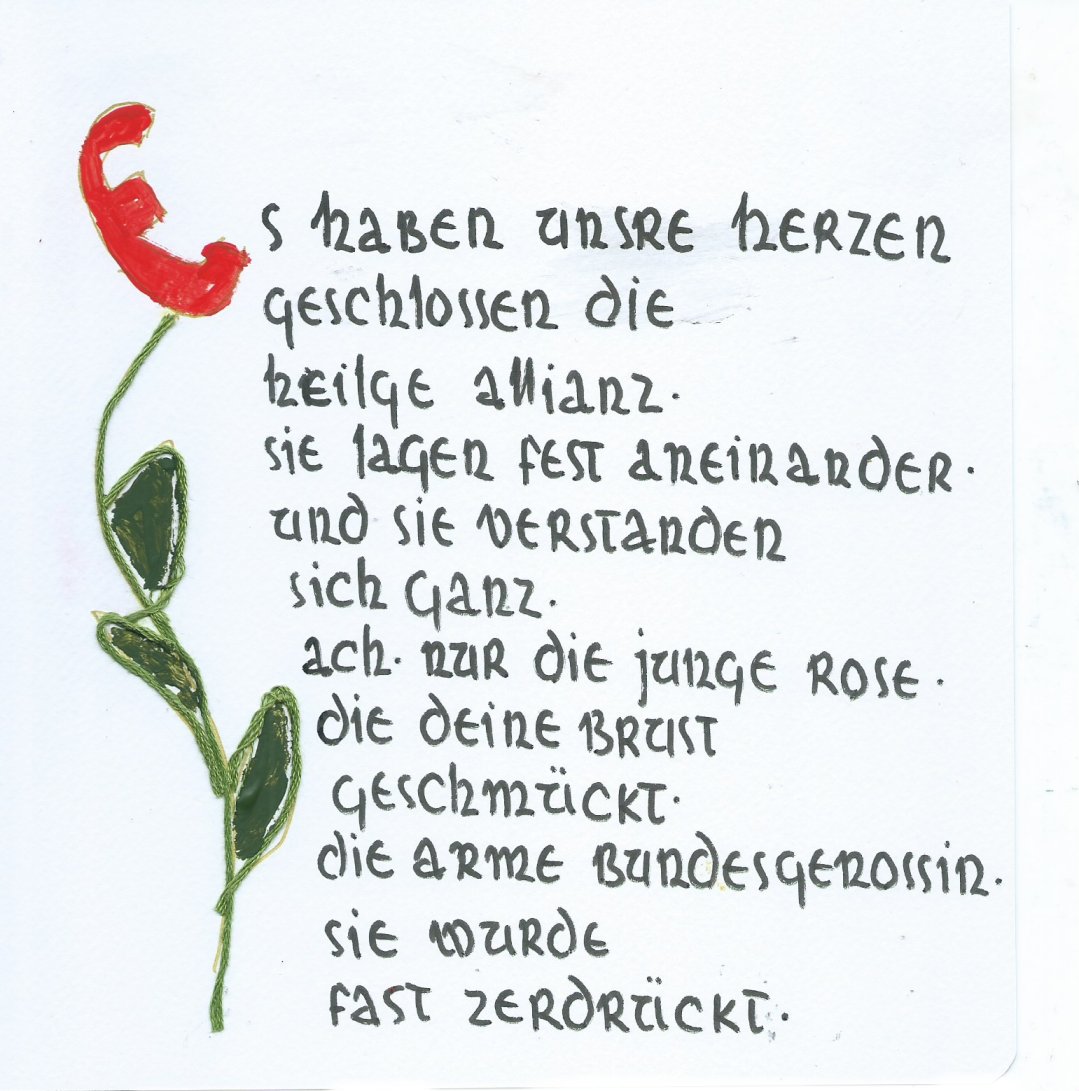 Es haben unsre herzen
geschlossen die
heilge allianz.
sie lagen fest aneinander.
und sie verstanden
sich ganz.
ach. nur die junge rose.
die deine brust
geschmückt.
die arme bundesgenossin.
sie wurde
fast zerdrückt.